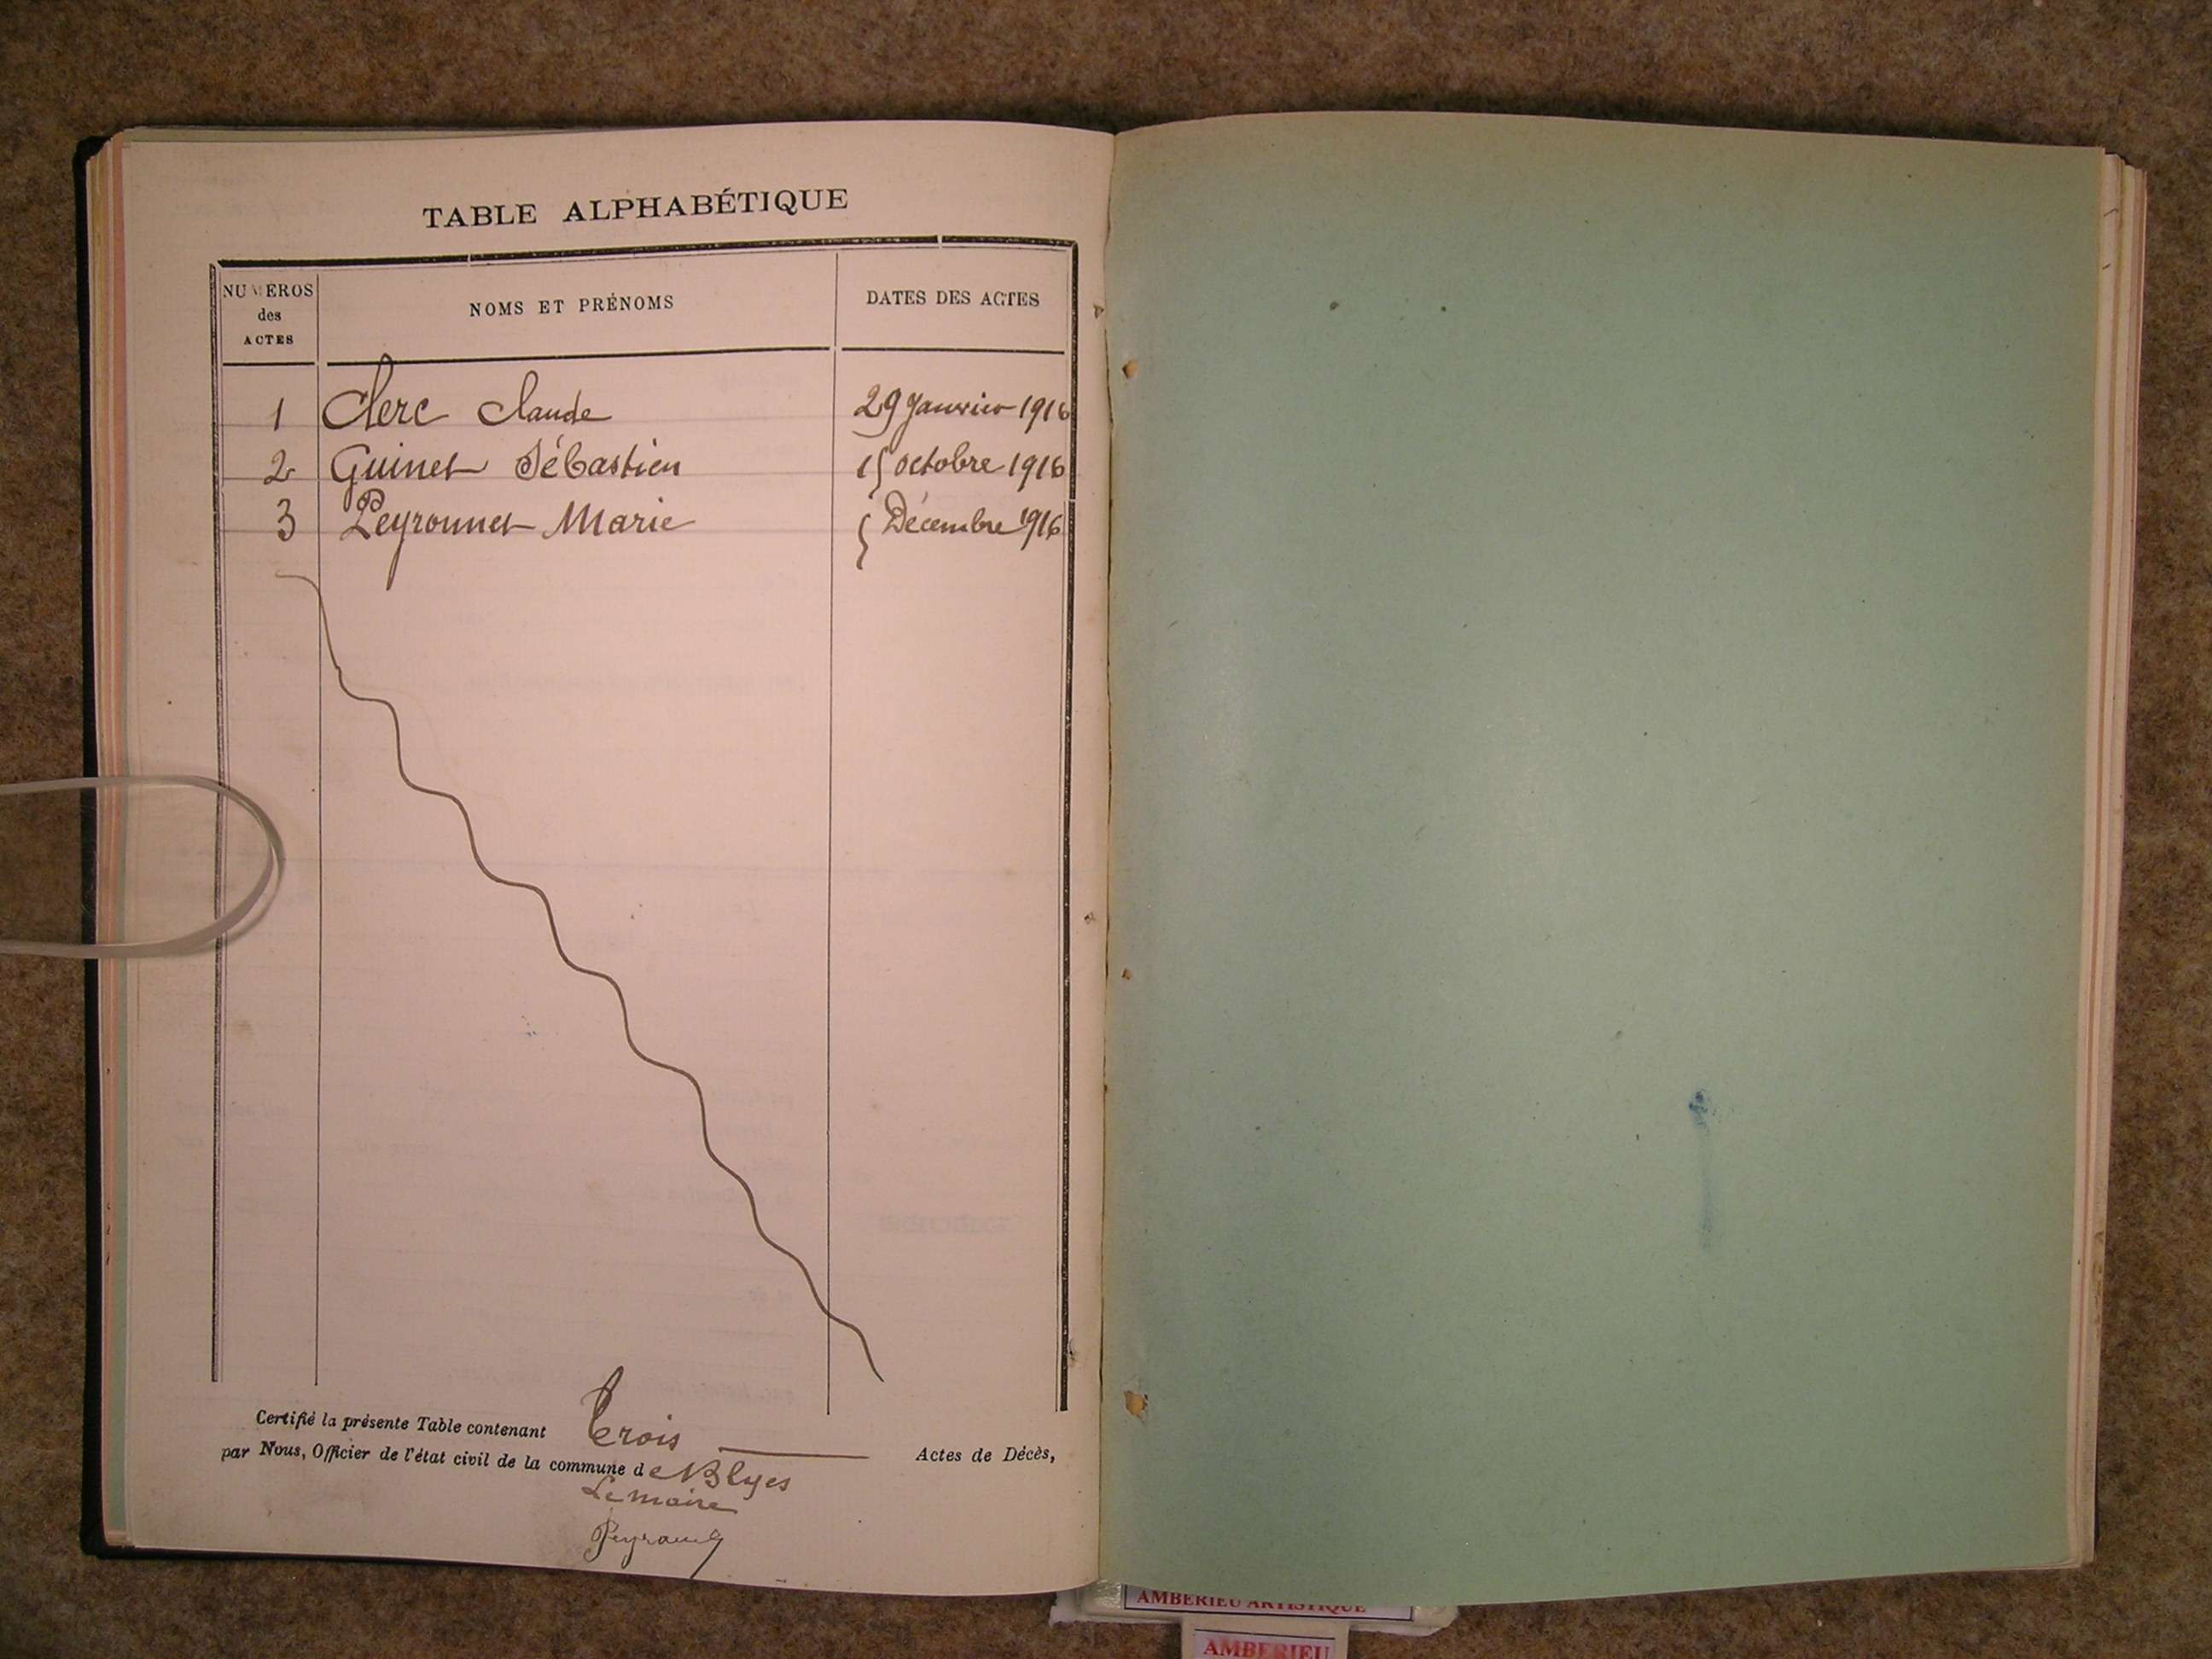 TABLE ALPHABÉTIQUE
NUMÉROS
des
ACTES
NOMS ET PRÉNOMS
DATES DES ACTES
1 Clerc Claude 29 Janvier 1916
2 Guinet Sébastien 15 octobre 1916
3 Peyronnet Marie 5 Décembre 1916
Certifié la présente Table contenant Trois Actes de Décès,
par Nous, Officier de l'état civil de la commune de Blyes
Le maire
AMBERIEU ARTISTIQUE
AMBERIEU